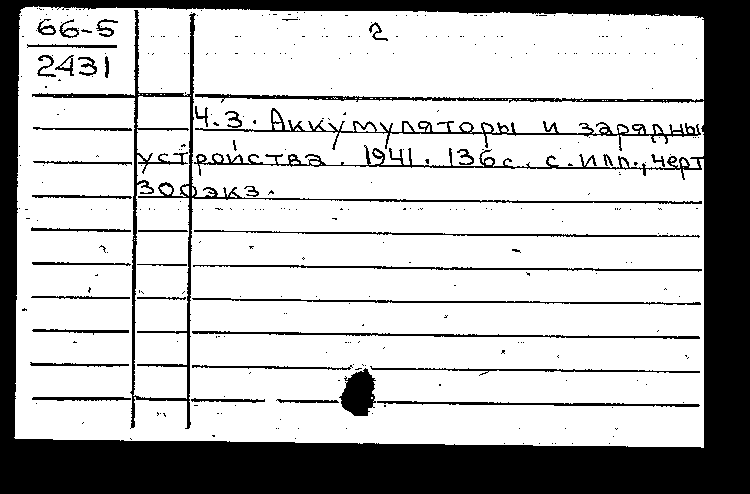 66-5
2431
2
Ч.3. Аккумуляторы и зарядны
устройства. 1941. 136с. с.илл., черт
300экз.